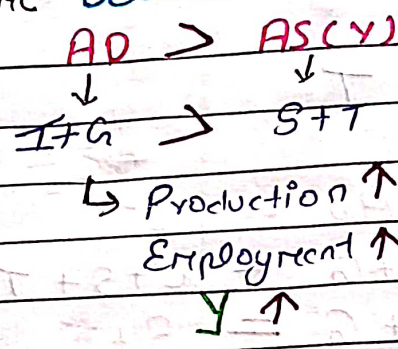 AD > AS(Y)
↓ ↓
I+G > S+T
↳ Production ↑
Employment ↑
Y ↑